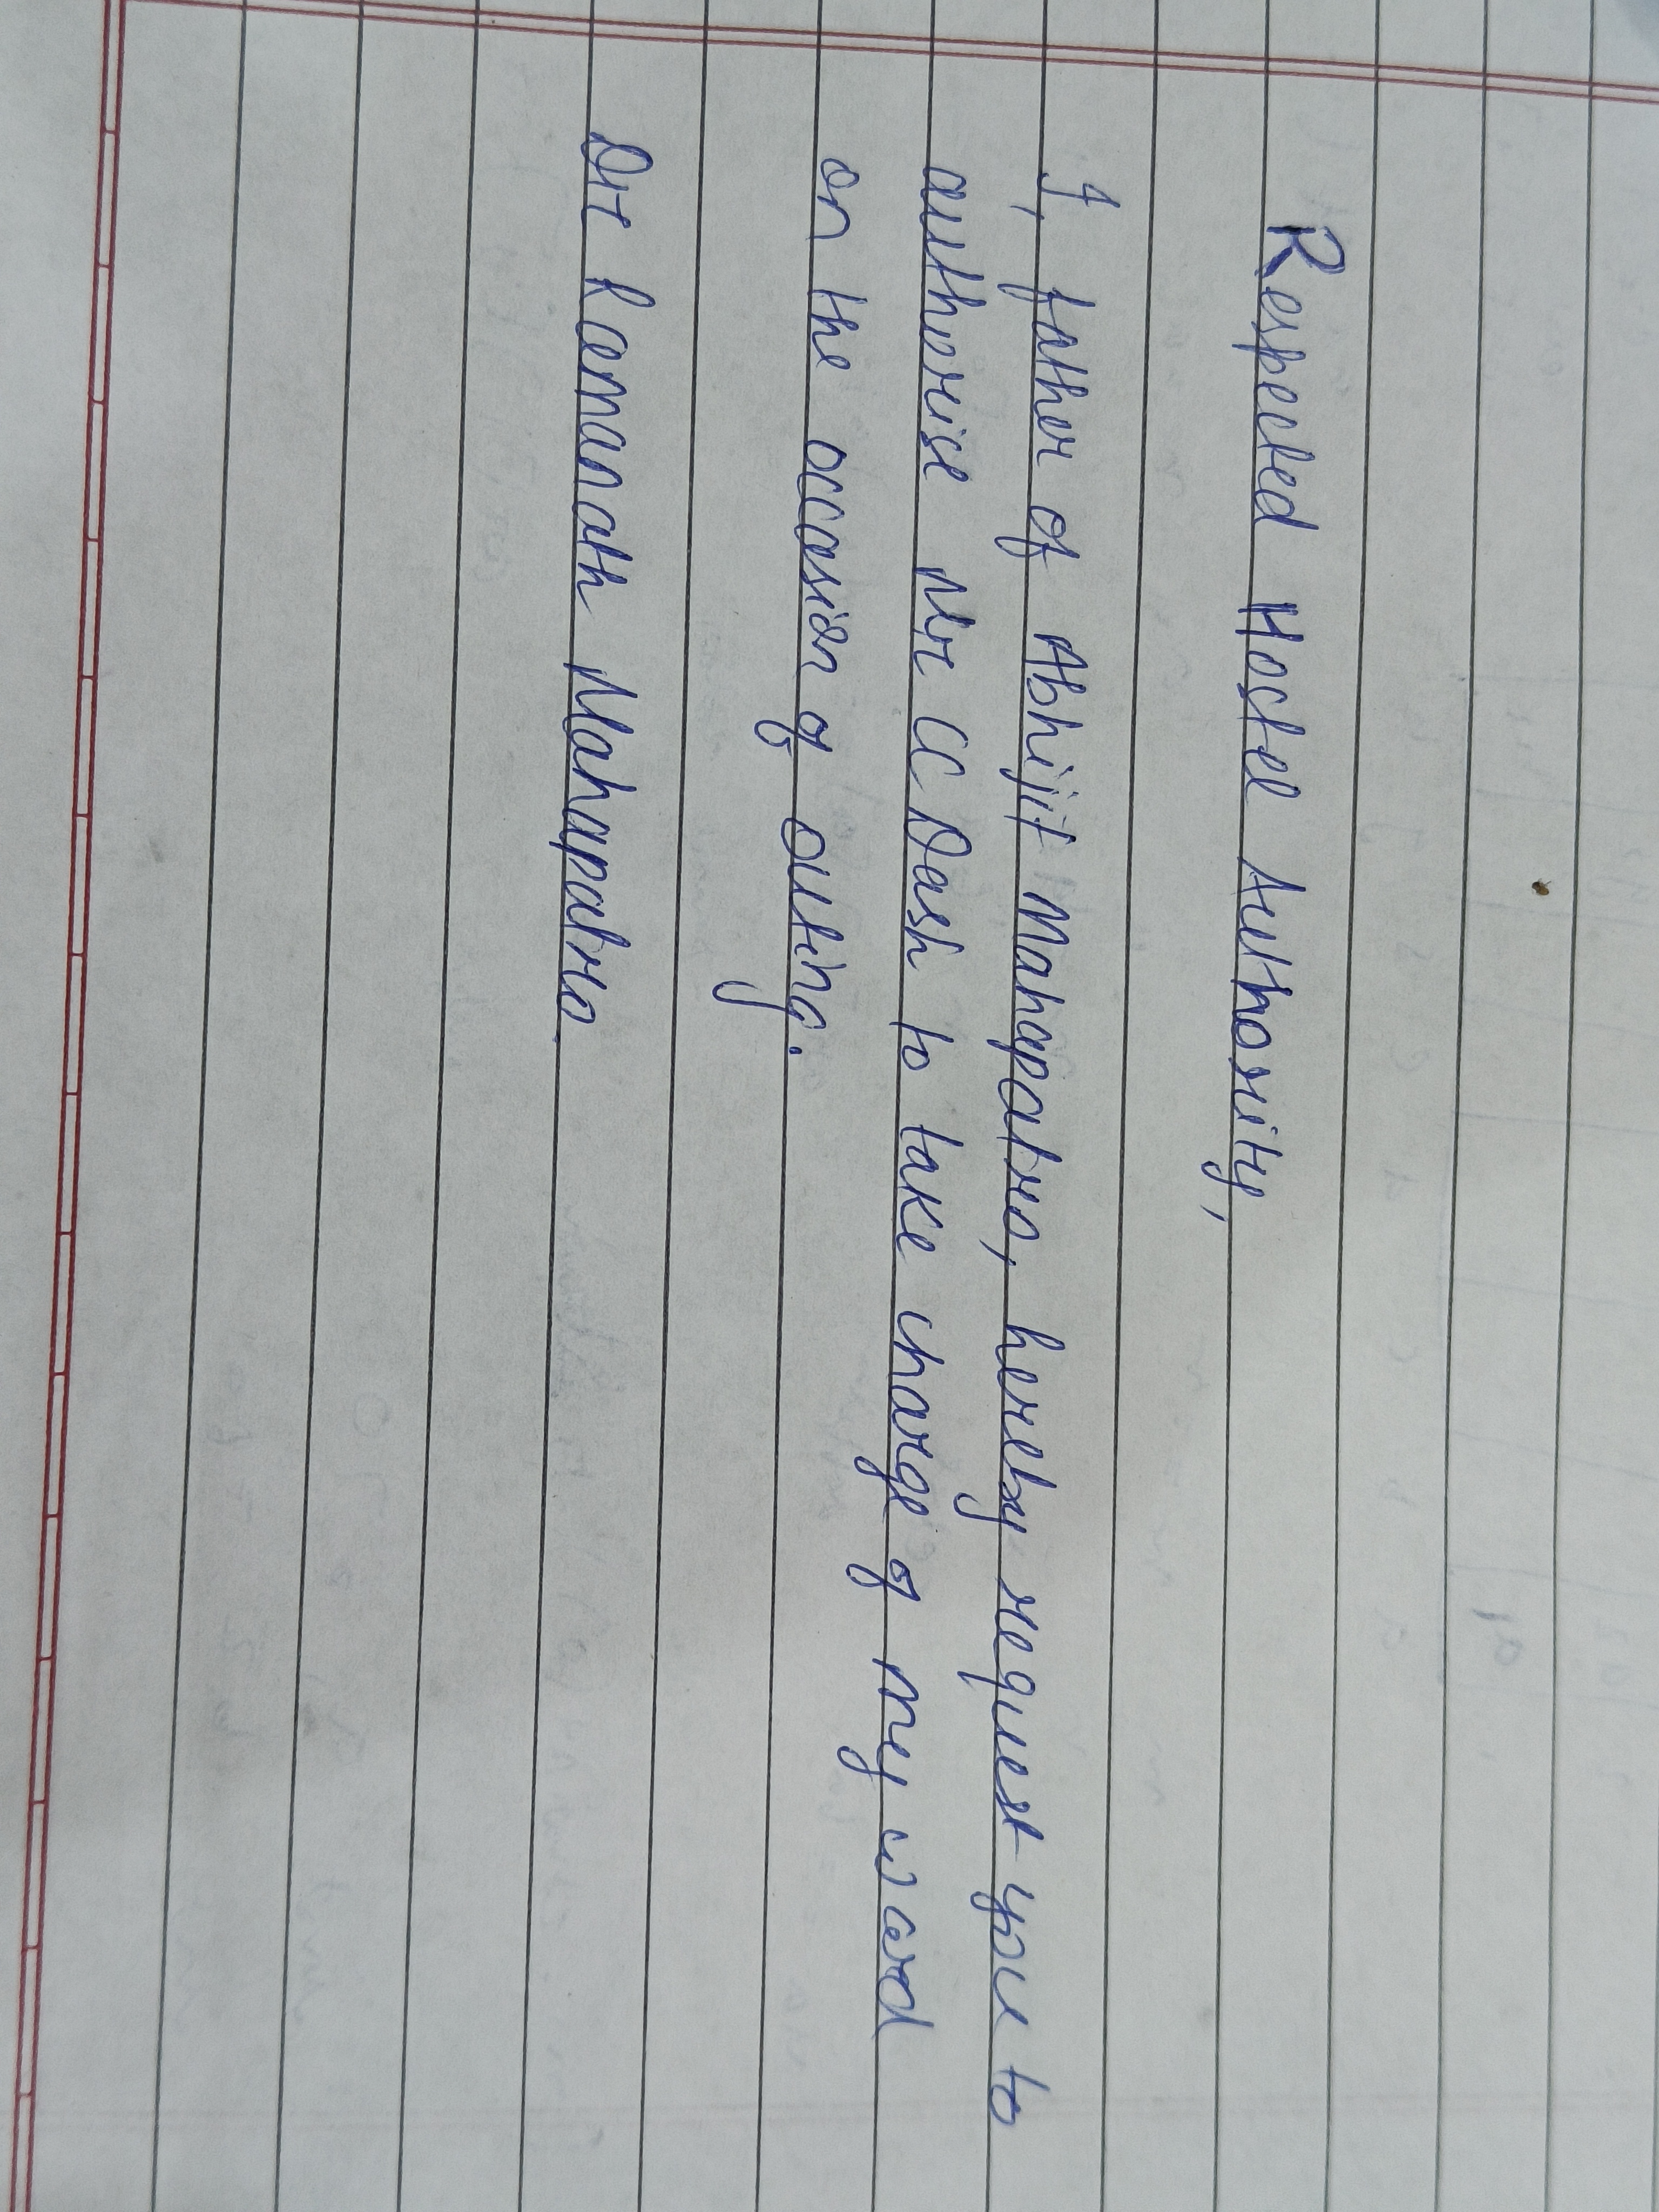 Respected Hostel Authority,
I, father of Abhijit Mahapatra, hereby request you to
authorise Mr CC Dash to take charge of my ward
on the occasion of outing.
Dr Ramanath Mahapatra